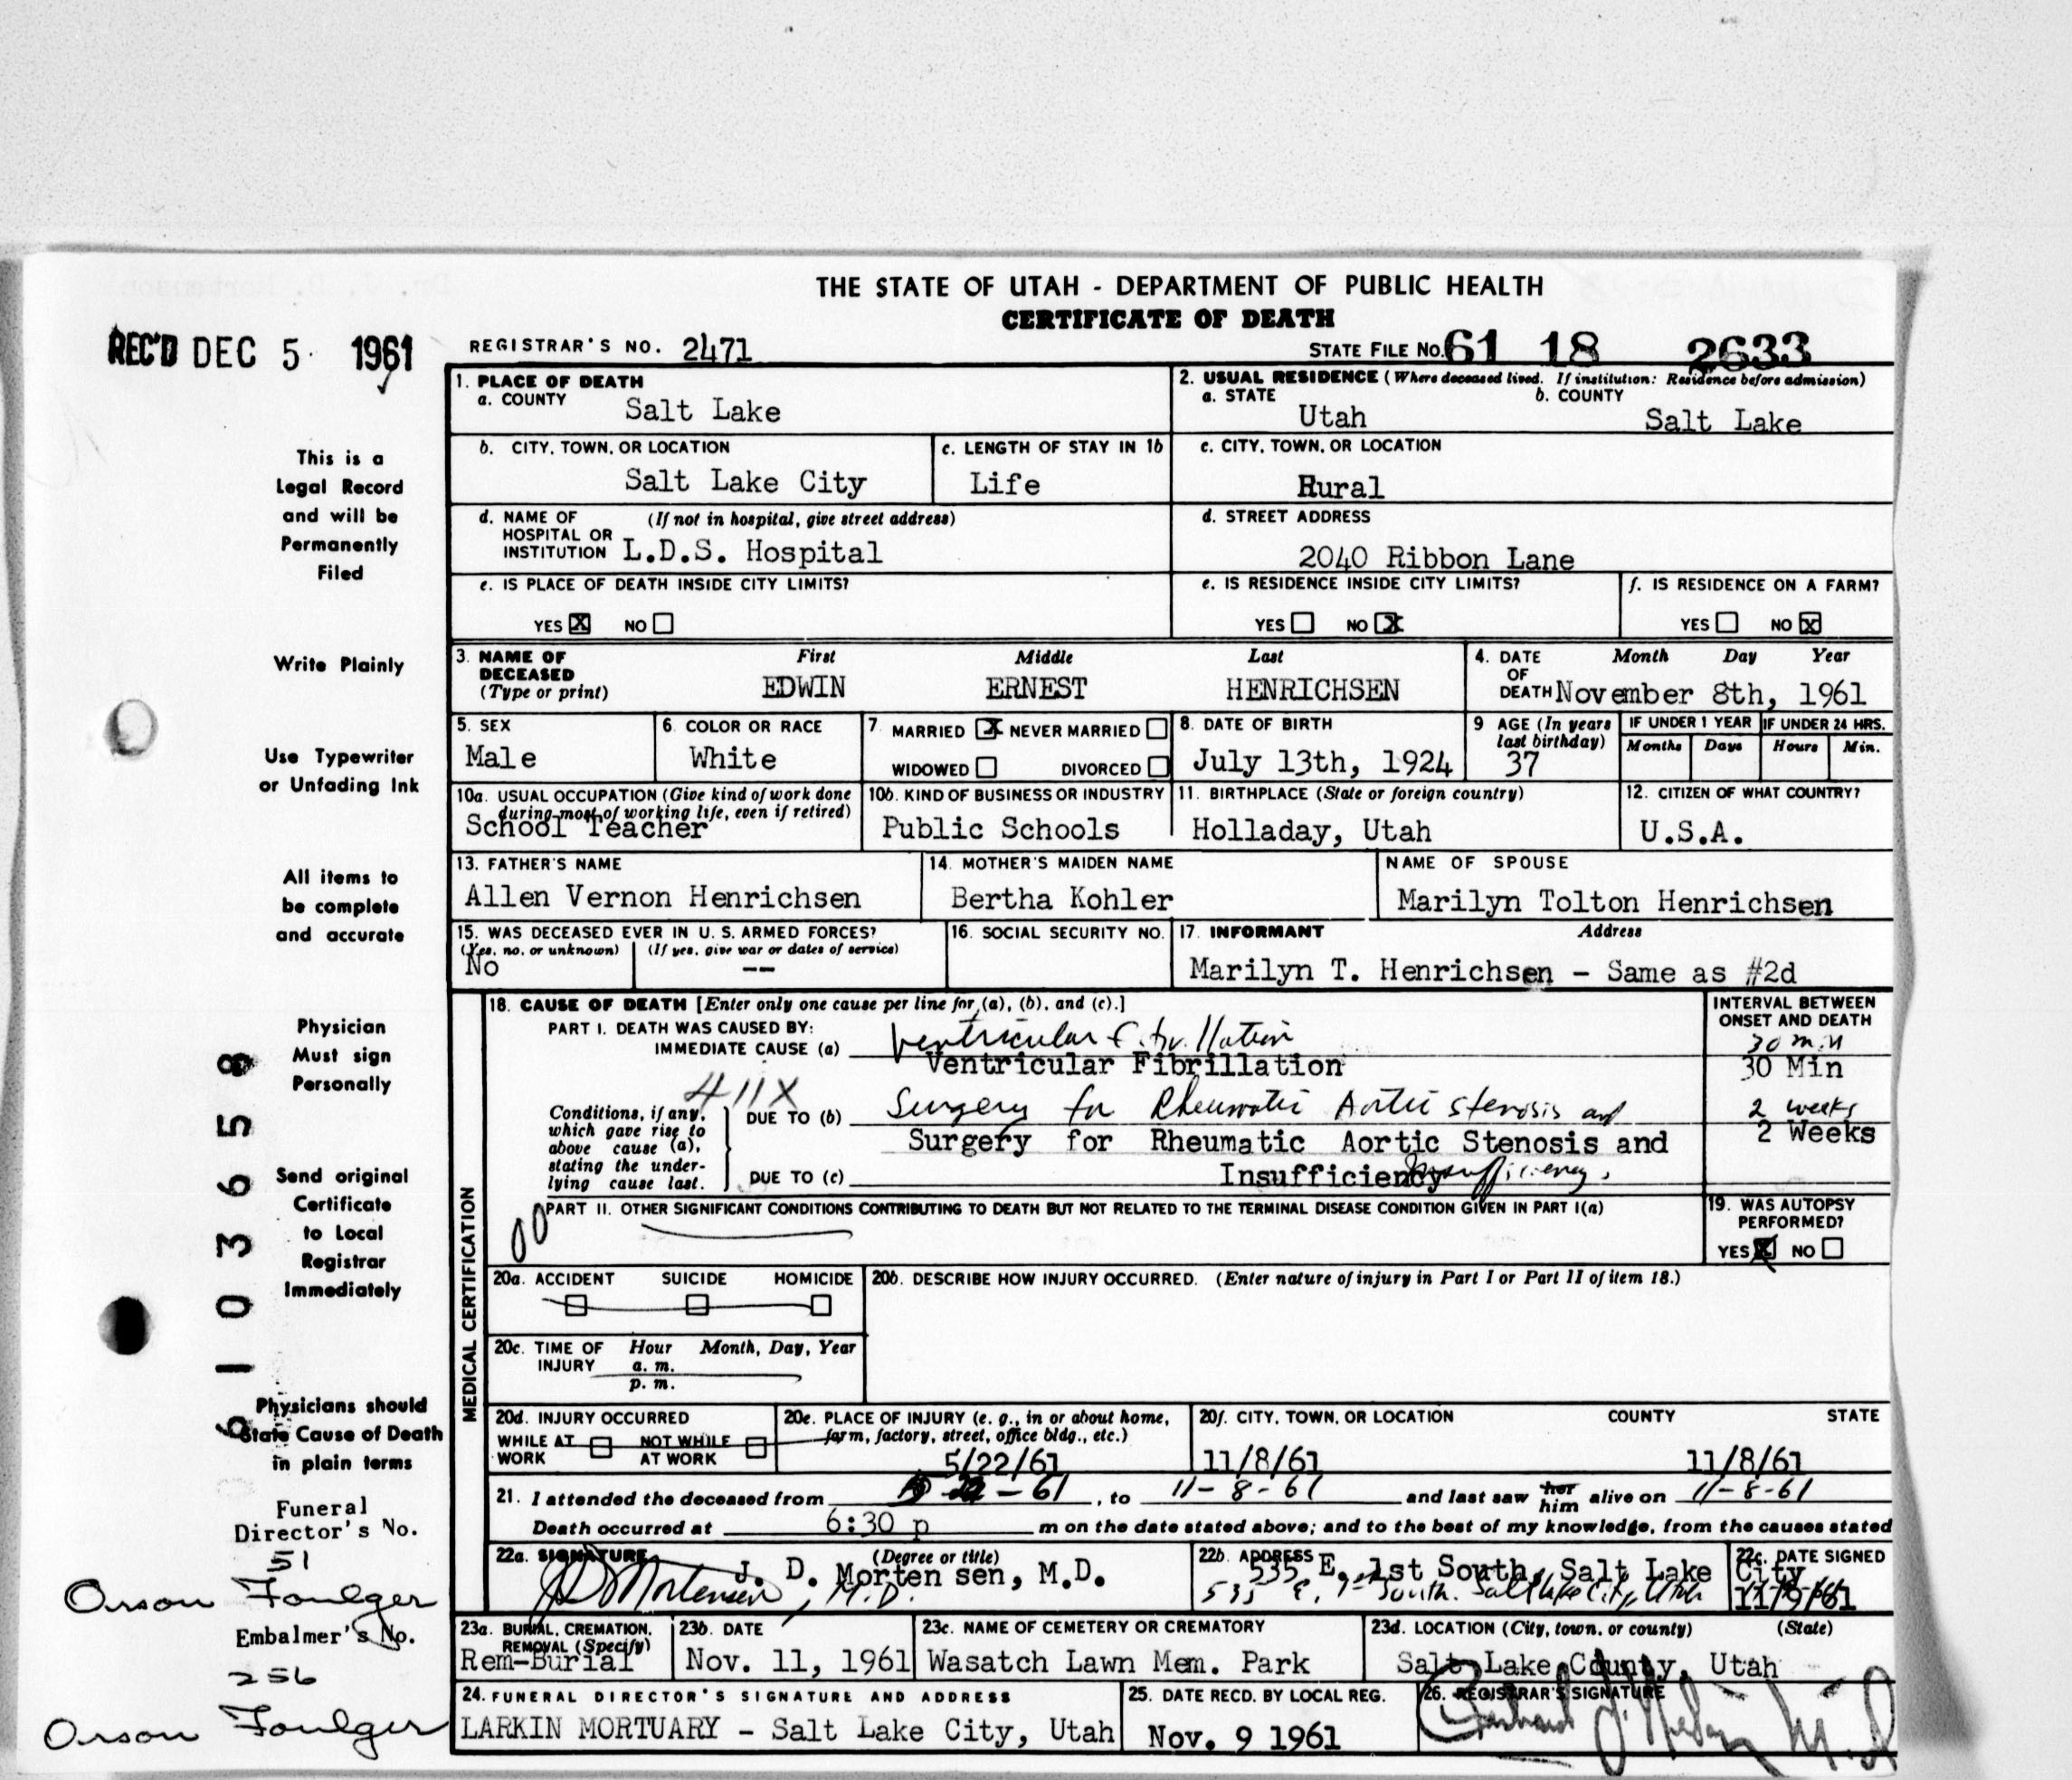 THE STATE OF UTAH - DEPARTMENT OF PUBLIC HEALTH
CERTIFICATE OF DEATH
REC'D DEC 5 1961
REGISTRAR'S NO. 2471
STATE FILE NO. 61 18 2633
1. PLACE OF DEATH
a. COUNTY Salt Lake
2. USUAL RESIDENCE (Where deceased lived. If institution: Residence before admission)
a. STATE Utah b. COUNTY Salt Lake
b. CITY, TOWN, OR LOCATION Salt Lake City
c. LENGTH OF STAY IN 1b Life
c. CITY, TOWN, OR LOCATION Rural
d. NAME OF HOSPITAL OR INSTITUTION (If not in hospital, give street address) L.D.S. Hospital
d. STREET ADDRESS 2040 Ribbon Lane
e. IS PLACE OF DEATH INSIDE CITY LIMITS? YES X NO
e. IS RESIDENCE INSIDE CITY LIMITS? YES NO X
f. IS RESIDENCE ON A FARM? YES NO X
3. NAME OF DECEASED (Type or print) First EDWIN Middle ERNEST Last HENRICHSEN
4. DATE OF DEATH Month Day Year November 8th, 1961
5. SEX Male
6. COLOR OR RACE White
7 MARRIED X NEVER MARRIED WIDOWED DIVORCED
8. DATE OF BIRTH July 13th, 1924
9 AGE (In years last birthday) 37
IF UNDER 1 YEAR Months Days
IF UNDER 24 HRS. Hours Min.
10a. USUAL OCCUPATION (Give kind of work done during most of working life, even if retired) School Teacher
10b. KIND OF BUSINESS OR INDUSTRY Public Schools
11. BIRTHPLACE (State or foreign country) Holladay, Utah
12. CITIZEN OF WHAT COUNTRY? U.S.A.
13. FATHER'S NAME Allen Vernon Henrichsen
14. MOTHER'S MAIDEN NAME Bertha Kohler
NAME OF SPOUSE Marilyn Tolton Henrichsen
15. WAS DECEASED EVER IN U. S. ARMED FORCES? (Yes, no, or unknown) No (If yes, give war or dates of service) --
16. SOCIAL SECURITY NO.
17. INFORMANT Address Marilyn T. Henrichsen - Same as #2d
MEDICAL CERTIFICATION
18. CAUSE OF DEATH [Enter only one cause per line for (a), (b), and (c).]
INTERVAL BETWEEN ONSET AND DEATH
PART I. DEATH WAS CAUSED BY:
IMMEDIATE CAUSE (a) Ventricular Fibrillation 30 min
Ventricular Fibrillation 30 Min
411X
Conditions, if any, which gave rise to above cause (a), stating the underlying cause last.
DUE TO (b) Surgery for Rheumatic Aortic stenosis and 2 weeks
Surgery for Rheumatic Aortic Stenosis and 2 Weeks
DUE TO (c) Insufficiency insufficiency.
00
PART II. OTHER SIGNIFICANT CONDITIONS CONTRIBUTING TO DEATH BUT NOT RELATED TO THE TERMINAL DISEASE CONDITION GIVEN IN PART I(a)
19. WAS AUTOPSY PERFORMED? YES X NO
20a. ACCIDENT SUICIDE HOMICIDE
20b. DESCRIBE HOW INJURY OCCURRED. (Enter nature of injury in Part I or Part II of item 18.)
20c. TIME OF INJURY Hour Month, Day, Year
a. m.
p. m.
20d. INJURY OCCURRED
WHILE AT WORK NOT WHILE AT WORK
20e. PLACE OF INJURY (e. g., in or about home, farm, factory, street, office bldg., etc.)
20f. CITY, TOWN, OR LOCATION COUNTY STATE
5/22/61 11/8/61 11/8/61
21. I attended the deceased from -61, to 11-8-61 and last saw her him alive on 11-8-61
Death occurred at 6:30 p m on the date stated above; and to the best of my knowledge, from the causes stated
22a. SIGNATURE (Degree or title) J. D. Mortensen, M.D.
JD Mortensen, M.D.
22b. ADDRESS 535 E. 1st South, Salt Lake City
535 E. 1st South. Salt Lake City, Utah
22c. DATE SIGNED 11/9/61
23a. BURIAL, CREMATION, REMOVAL (Specify) Rem-Burial
23b. DATE Nov. 11, 1961
23c. NAME OF CEMETERY OR CREMATORY Wasatch Lawn Mem. Park
23d. LOCATION (City, town, or county) (State) Salt Lake County, Utah
24. FUNERAL DIRECTOR'S SIGNATURE AND ADDRESS
LARKIN MORTUARY - Salt Lake City, Utah
25. DATE RECD. BY LOCAL REG. Nov. 9 1961
26. REGISTRAR'S SIGNATURE
This is a
Legal Record
and will be
Permanently
Filed
Write Plainly
Use Typewriter
or Unfading Ink
All items to
be complete
and accurate
Physician
Must sign
Personally
Send original
Certificate
to Local
Registrar
Immediately
Physicians should
State Cause of Death
in plain terms
6103658
Funeral
Director's No.
51
Orson Foulger
Embalmer's No.
256
Orson Foulger